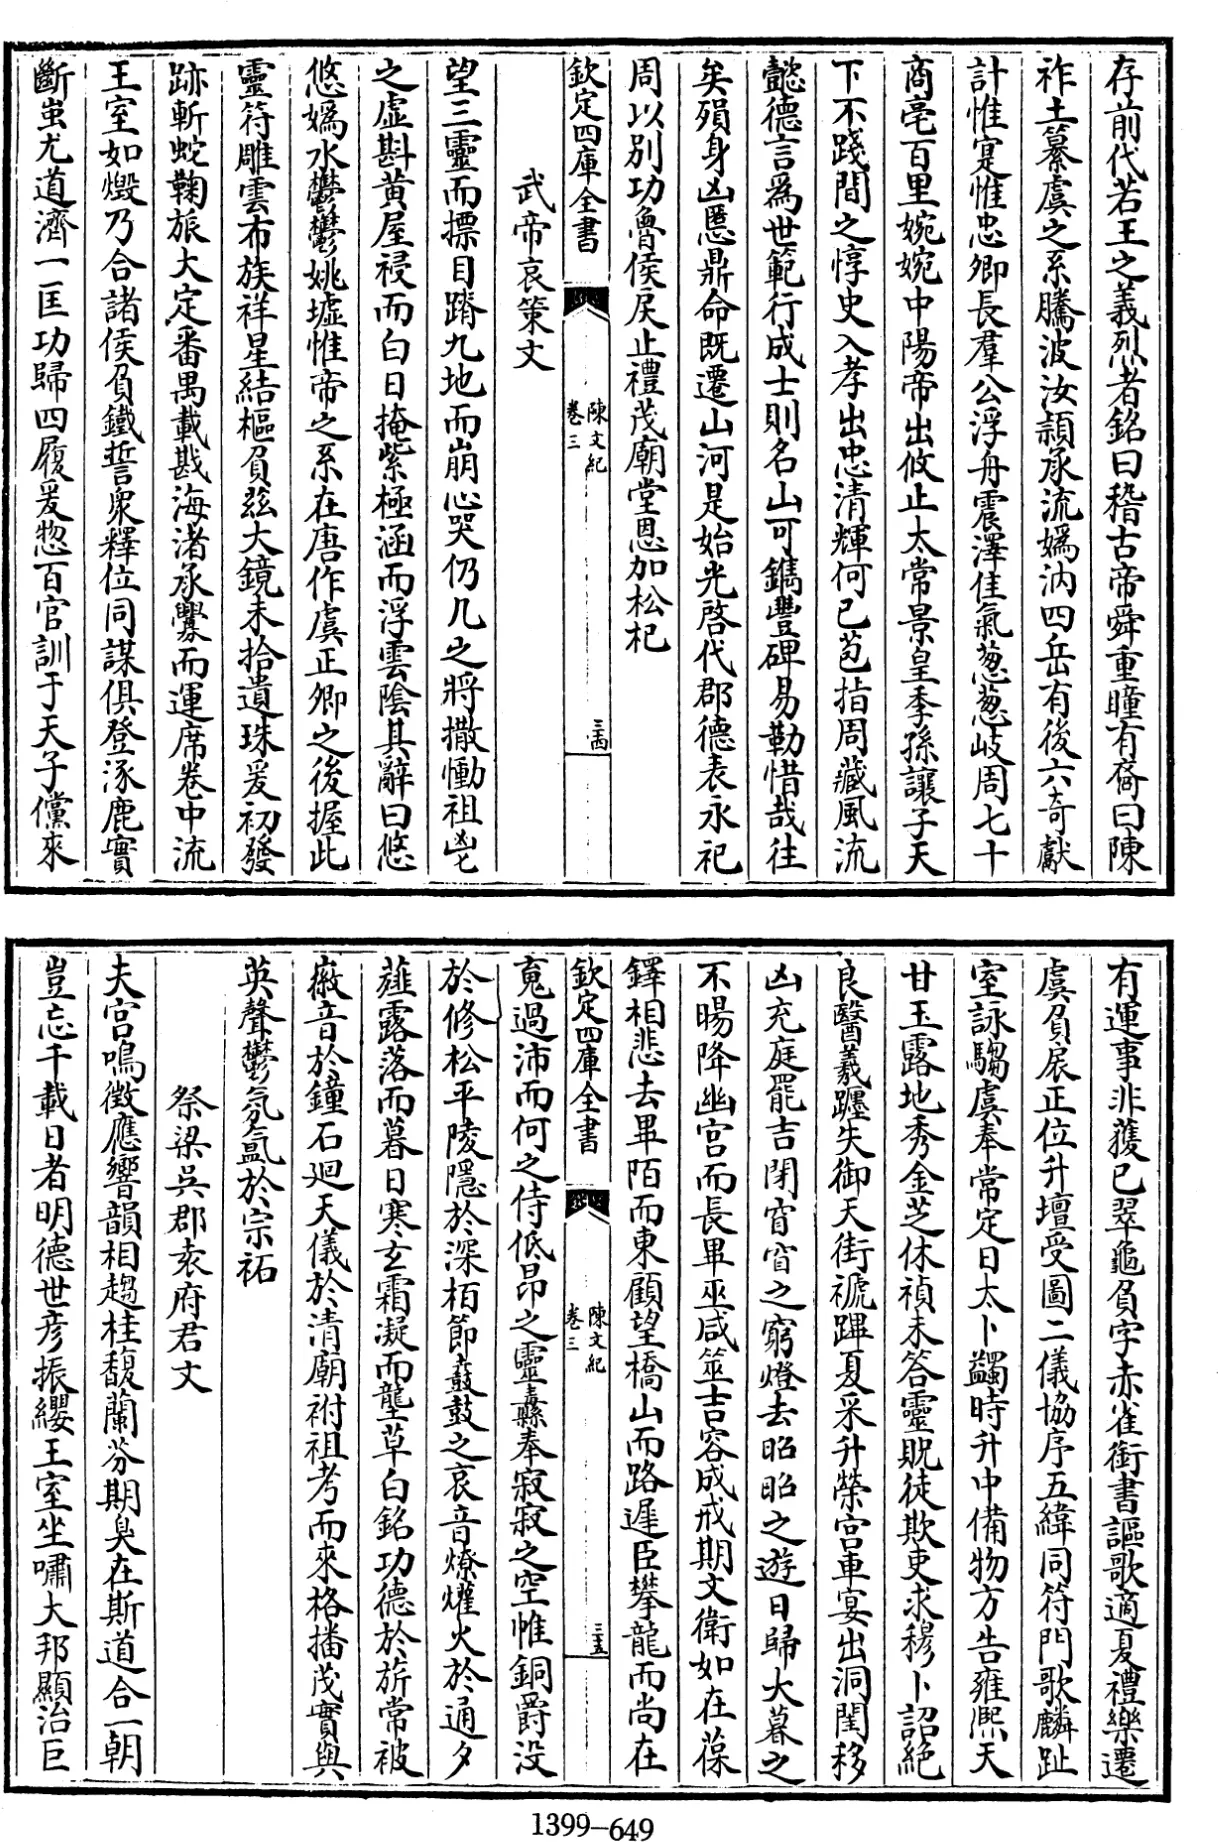 存前代若王之義烈者銘曰稽古帝舜重瞳有裔曰陳
祚土纂虞之系騰波汝潁承流嬀汭四岳有後六奇獻
計惟寔惟忠卿長羣公浮舟震澤佳氣葱葱岐周七十
商亳百里婉婉中陽帝出攸止太常景皇季孫讓子天
下不踐間之惇史入孝出忠清輝何已苞指周藏風流
懿德言為世範行成士則名山可鐫豐碑易勒惜哉往
矣殞身凶慝鼎命既遷山河是始光啓代郡德表永祀
周以別功魯侯戾止禮茂廟堂恩加松杞
欽定四庫全書
陳文紀
卷三
三西
武帝哀策文
望三靈而摽目蹐九地而崩心哭仍几之將撤慟祖
之虛斟黄屋祲而白日掩紫極涵而浮雲陰其辭曰悠
悠嬀水鬱鬱姚墟惟帝之系在唐作虞正卿之後握此
靈符雕雲布族祥星結樞負茲大鏡未拾遺珠爰初發
跡斬蛇鞠旅大定番禺載戡海渚承釁而運席卷中流
王室如燬乃合諸侯負鐵誓衆釋位同謀俱登涿鹿實
斷蚩尤道濟一匡功歸四履爰惣百官訓于天子儻來
有運事非獲已翠龜負字赤雀銜書謳歌適夏禮樂遷
虞負扆正位升壇受圖二儀協序五緯同符門歌麟趾
室詠騶虞奉常定日太卜蠲時升中備物方告雍熈天
甘玉露地秀金芝休禎未答靈貺徒欺吏求穆卜詔絕
良醫羲躔失御天街褫蹕夏采升榮宫車宴出洞閨移
凶充庭罷吉閉窅窅之窮燈去昭昭之遊日歸大暮之
不暘降幽宫而長畢巫咸筮吉容成戒期文衛如在葆
鐸相悲去畢陌而東顧望橋山而路遲臣攀龍而尚在
欽定四庫全書
陳文紀
卷三
三五
䰟過沛而何之侍低昂之靈纛奉寂寂之空帷銅爵没
於修松平陵隱於深栢節鼖鼓之哀音燎爟火於通夕
薤露落而暮日寒玄霜凝而壟草白銘功德於旂常被
徽音於鐘石迴天儀於清廟祔祖考而來格播茂實與
英聲鬱氛氲於宗祏
祭梁吳郡袁府君文
夫宫鳴徵應響韻相趨桂馥蘭芬期臭在斯道合一朝
豈忘千載日者明德世彦振纓王室坐嘯大邦顯治巨
1399-649